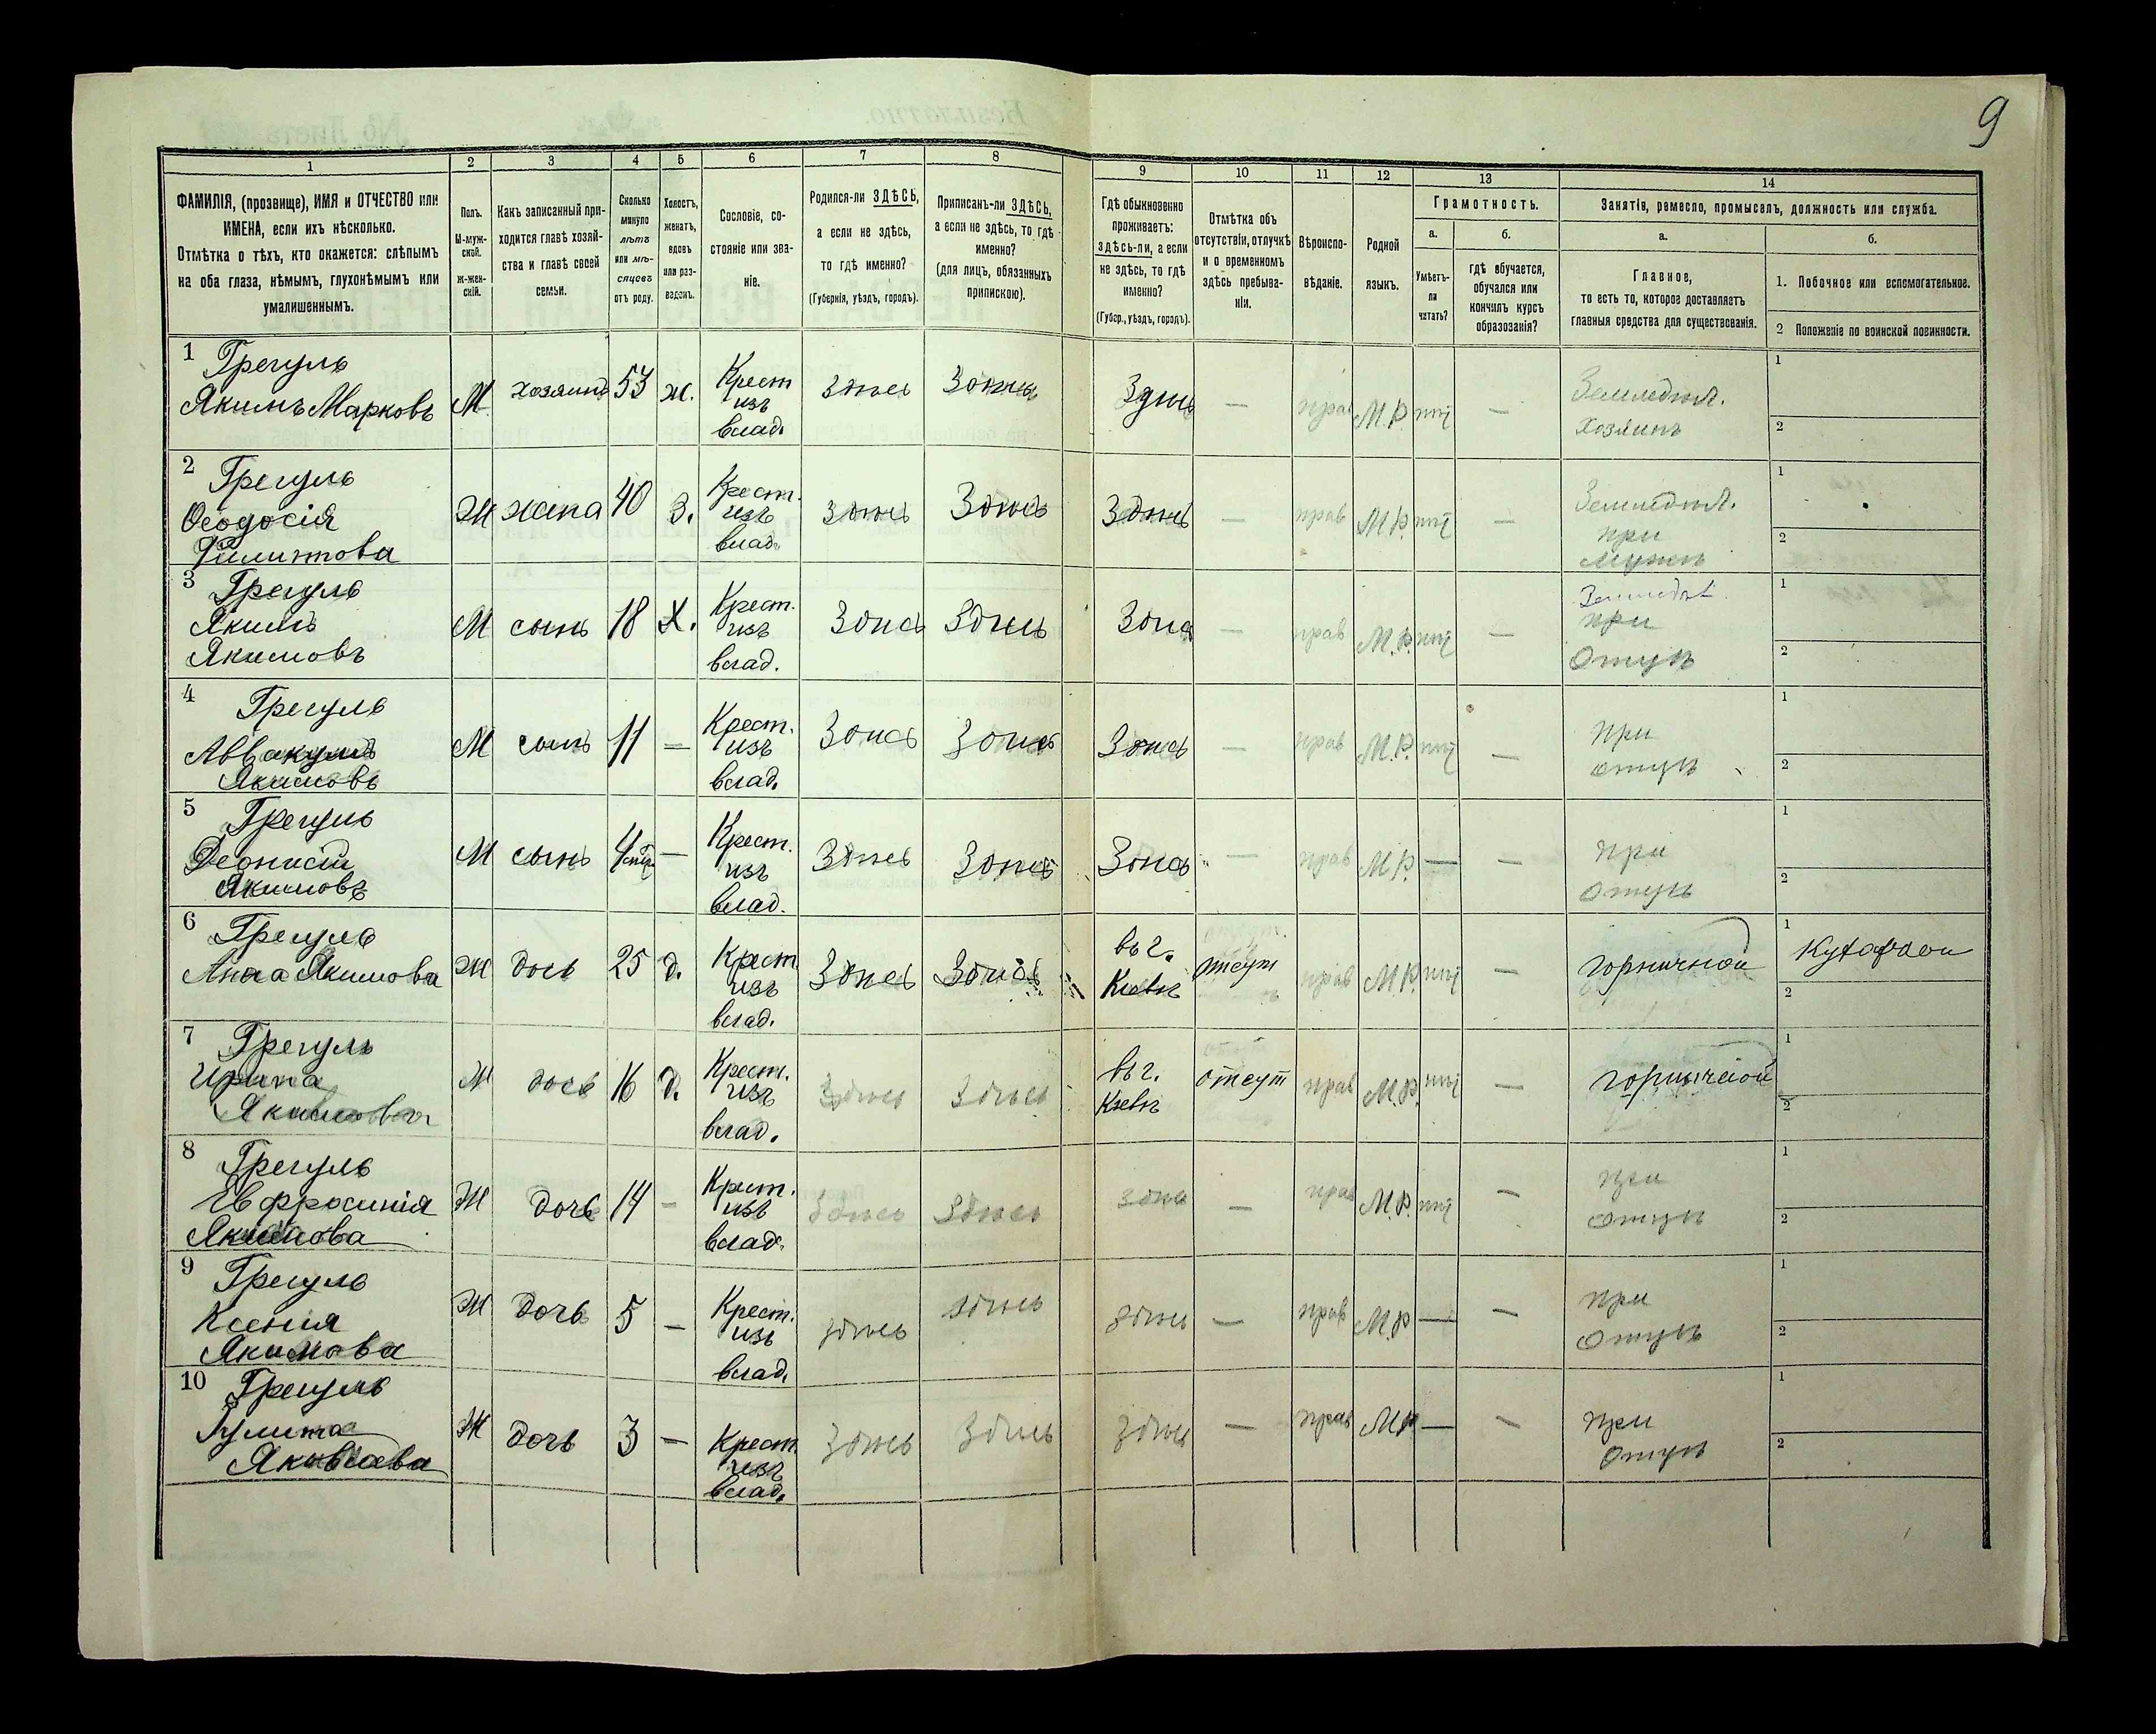 9
1 2 3 4 5 6 7 8 9 10 11 12 13 14
ФАМИЛІЯ, (прозвище), ИМЯ и ОТЧЕСТВО или
ИМЕНА, если ихъ нѣсколько.
Отмѣтка о тѣхъ, кто окажется: слѣпымъ
на оба глаза, нѣмымъ, глухонѣмымъ или
умалишеннымъ.
Полъ.
М-муж-
ской.
ж-жен-
скій.
Какъ записанный при-
ходится главѣ хозяй-
ства и главѣ своей
семьи.
Сколько
минуло
лѣтъ
или мѣ-
сяцевъ
отъ роду.
Холостъ,
женатъ,
вдовъ
или раз-
веденъ.
Сословіе, со-
стояніе или зва-
ніе.
Родился-ли ЗДѢСЬ,
а если не здѣсь,
то гдѣ именно?
(Губернія, уѣздъ, городъ).
Приписанъ-ли ЗДѢСЬ,
а если не здѣсь, то гдѣ
именно?
(для лицъ, обязанныхъ
припискою).
Гдѣ обыкновенно
проживаетъ:
здѣсь-ли, а если
не здѣсь, то гдѣ
именно?
(Губер., уѣздъ, городъ).
Отмѣтка объ
отсутствіи, отлучкѣ
и о временномъ
здѣсь пребыва-
ніи.
Вѣроиспо-
вѣданіе.
Родной
языкъ.
Грамотность.
а.
Умѣетъ-
ли
читать?
б.
гдѣ обучается,
обучался или
кончилъ курсъ
образованія?
Занятіе, ремесло, промыселъ, должность или служба.
а.
Главное,
то есть то, которое доставляетъ
главныя средства для существованія.
б.
1. Побочное или вспомогательное.
2 Положеніе по воинской повинности.
1 Грегуль
Якимъ Марковъ М. хозяинъ 53 ж. Крест
изъ
влад. здѣсь здѣсь Здѣсь — прав М.Р. нѣт — Земледѣл.
Хозяинъ
1
2
2 Грегуль
Ѳеодосія
Филиппова Ж жена 40 З. Крест.
изъ
влад. здѣсь Здѣсь Здѣсь — прав М.Р. нѣт — Земледѣл.
при
мужѣ
1
2
3 Грегуль
Якимъ
Якимовъ М сынъ 18 Х. Крест.
изъ
влад. Здѣсь Здѣсь Здѣсь — прав М.Р. нѣт — Земледѣл.
при
Отцѣ
1
2
4 Грегуль
Аввакумъ
Якимовъ М сынъ 11 — Крест.
изъ
влад. Здѣсь Здѣсь Здѣсь — прав М.Р. нѣт — при
отцѣ
1
2
5 Грегуль
Якимовъ М сынъ — Крест.
изъ
влад. Здѣсь Здѣсь Здѣсь — прав М.Р. — — при
Отцѣ
1
2
6 Грегуль
Анна Якимова Ж дочь 25 д. Крест
изъ
влад. Здѣсь Здѣсь въ г.
Кіевѣ отсут прав М.Р. нѣт — горничной
1
2
7 Грегуль
Ирина
Якимова М дочь 16 д. Крест.
изъ
влад. Здѣсь Здѣсь въ г.
Кіевѣ отсут прав М.Р. нѣт — горничной
1
2
8 Грегуль
Евфросинія
Якимова Ж дочь 14 - Крест.
изъ
влад. Здѣсь здѣсь здѣсь — прав М.Р. нѣт — при
Отцѣ
1
2
9 Грегуль
Ксенія
Якимова Ж дочь 5 — Крест.
изъ
влад. здѣсь здѣсь здѣсь — прав М.Р — — при
Отцѣ
1
2
10 Грегуль
Якимова Ж дочь 3 — Крест.
изъ
влад. Здѣсь Здѣсь Здѣсь — прав МР — — при
Отцѣ
1
2